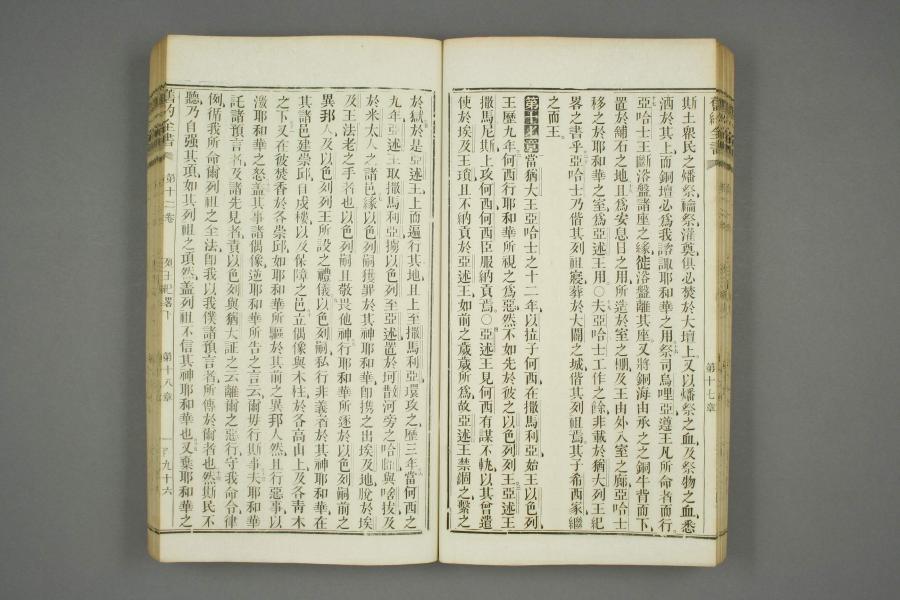 斯土眾民之燔祭禴祭灌奠俱必焚於大壇上又以燔祭之血及祭物之血悉
洒於其上而銅壇必爲我諮諏耶和華之用祭司烏哩亞遵王凡所命者而行
亞哈士王斷浴盤諸座之緣徙浴盤離其座又將銅海由承之之銅牛背而下
置於鋪石之地且爲安息日之用所造於室之棚及王由外入室之廊亞哈士
移之於耶和華之室爲亞述王用○夫亞哈士工作之餘非載於猶大列王紀
畧之書乎亞哈士乃偕其列祖寢葬於大闢之城偕其列祖焉其子希西家繼
之而王
當猶大王亞哈士之十二年以拉子何西在撒馬利亞始王以色列
王歷九年何西行耶和華所視之爲惡然不如先於彼之以色列列王亞述王
撒馬尼斯上攻何西何西臣服納貢焉○亞述王見何西有謀不軌以其曾遣
使於埃及王瑣且不納貢於亞述王如前之歲歲所爲故亞述王禁錮之繫之
第十七章
於獄於是亞述王上而遍行其地且上至撒馬利亞環攻之歷三年當何西之
九年亞述王取撒馬利亞擄以色列至亞述置於坷散河旁之哈臘與哈拔及
於米太人之諸邑緣以色列嗣獲罪於其神耶和華卽攜之出埃及地脫於埃
及王法老之手者也以色列嗣且敬畏他神行耶和華所逐於以色列嗣前之
異邦人及以色列王所設之禮儀以色列嗣私行非義者於其神耶和華在
其諸邑建崇邱自戍樓以及保障之邑立偶像與木柱於各高山上及各靑木
之下又在彼焚香於各崇邱如耶和華所驅於其前之異邦人然且行惡事以
激耶和華之怒蓋其事諸偶像逆耶和華所告之言云爾毋行斯事夫耶和華
託諸預言者及諸先見者責以色列與猶大証之云離爾之惡行守我命令律
例循我所命爾列祖之全法卽我以我僕諸預言者所傳於爾者也然斯民不
聽乃自强其項如其列祖之項然蓋列祖不信其神耶和華也又棄耶和華之
第十二卷
第十八章
九十六